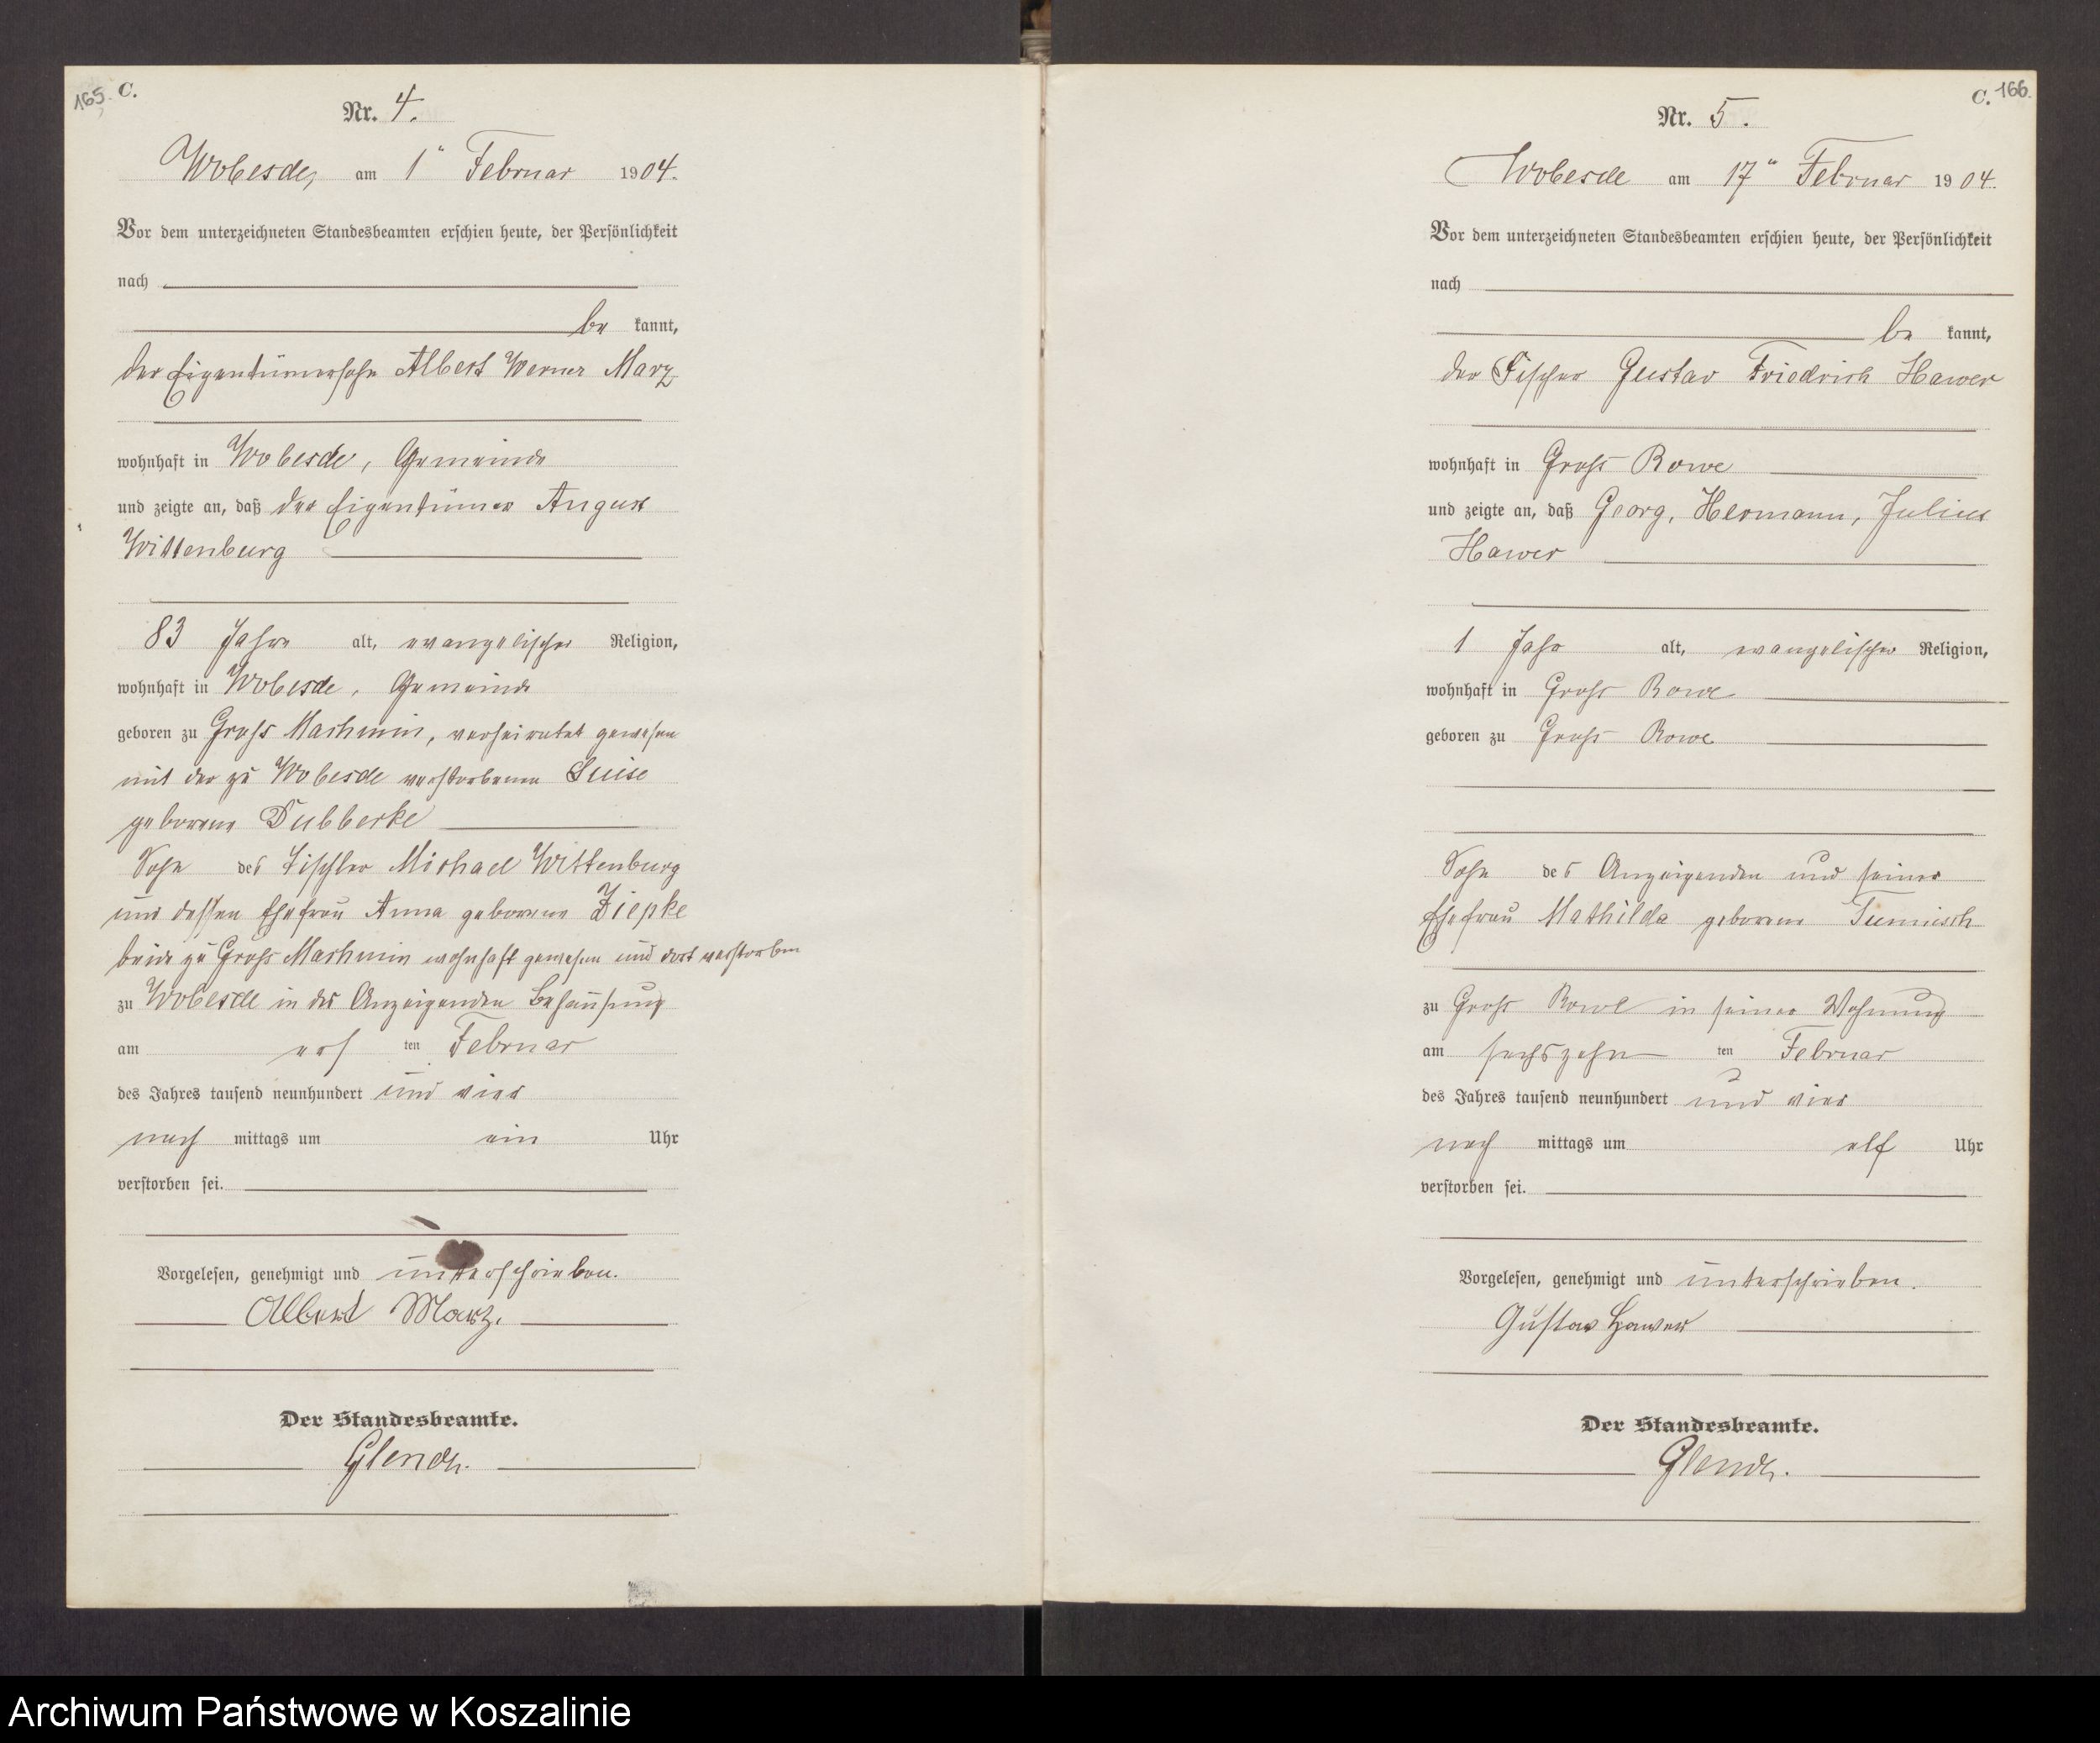 165. C.
Nr. 4.
Wobesde, am 1ten Februar 1904.
Vor dem unterzeichneten Standesbeamten erschien heute, der Persönlichkeit
nach
be kannt,
der Eigentümersohn Albert Werner Marz
wohnhaft in Wobesde, Gemeinde
und zeigte an, daß der Eigentümer August
Wittenburg
83 Jahre alt, evangelischer Religion,
wohnhaft in Wobesde, Gemeinde
geboren zu Groß Machmin, verheiratet gewesen
mit der zu Wobesde verstorbenen Luise
geborene Dubberke
Sohn des Tischler Michael Wittenburg
und dessen Ehefrau Anna geborene Ziepke
beide zu Groß Machmin wohnhaft gewesen und dort verstorben
zu Wobesde in des Anzeigenden Behausung
am ers ten Februar
des Jahres tausend neunhundert und vier
nach mittags um ein Uhr
verstorben sei.
Vorgelesen, genehmigt und unterschrieben.
Albert Marz.
Der Standesbeamte.
C. 166.
Nr. 5.
Wobesde am 17ten Februar 1904.
Vor dem unterzeichneten Standesbeamten erschien heute, der Persönlichkeit
nach
be kannt,
der Fischer Gustav Friedrich Hawer
wohnhaft in Groß Rowe
und zeigte an, daß Georg, Hermann, Julius
Hawer
1 Jahr alt, evangelischer Religion,
wohnhaft in Groß Rowe
geboren zu Groß Rowe
Sohn des Anzeigenden und seiner
Ehefrau Mathilda geborene
zu Groß Rowe in seiner Wohnung
am sechszehn ten Februar
des Jahres tausend neunhundert und vier
nach mittags um elf Uhr
verstorben sei.
Vorgelesen, genehmigt und unterschrieben.
Gustav Hawer
Der Standesbeamte.
Archiwum Państwowe w Koszalinie